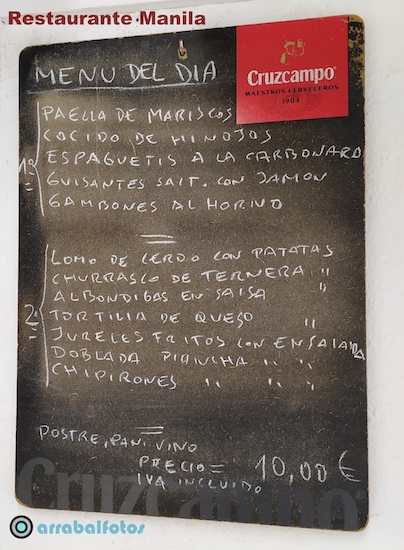 Restaurante Manila
MENU DEL DIA
Cruzcampo
MAESTROS CERVECEROS
1904
1º
PAELLA DE MARISCOS
COCIDO DE HINOJOS
ESPAGUETIS A LA CARBONARA
GUISANTES SALT. CON JAMON
GAMBONES AL HORNO
2º
LOMO DE CERDO CON PATATAS
CHURRASCO DE TERNERA "
ALBONDIGAS EN SALSA "
TORTILLA DE QUESO "
JURELES FRITOS CON ENSALADA
DOBLADA PLANCHA " "
CHIPIRONES " " "
POSTRE, PAN, VINO
PRECIO = 10,00 €
IVA INCLUIDO
Cruzcampo
arrabalfotos